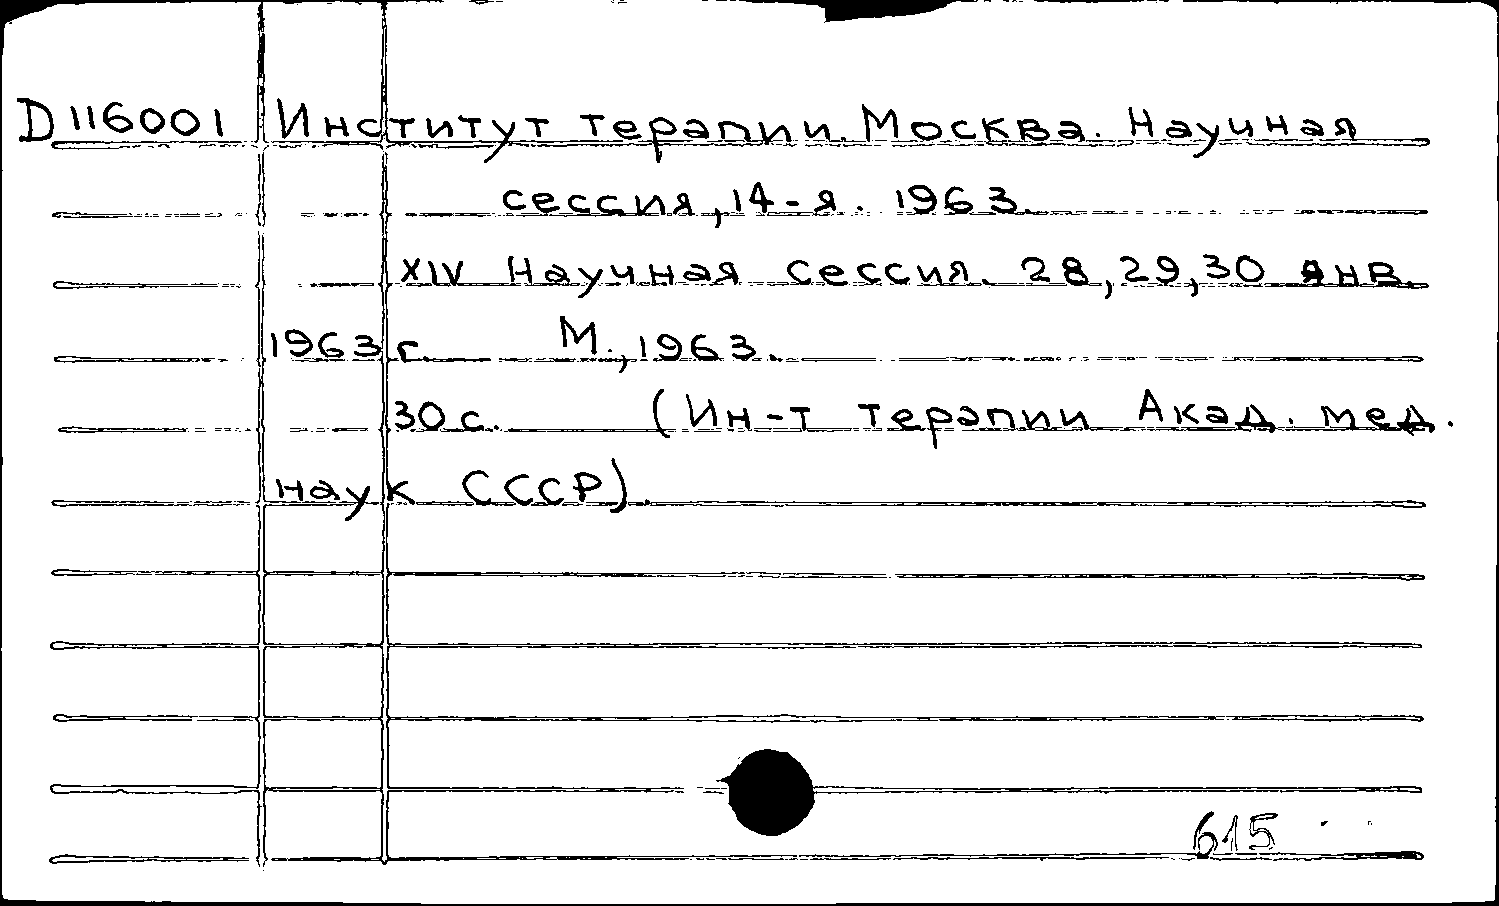 D116001 Институт терапии. Москва. Научная
сессия, 14-я. 1963.
XIV Научная сессия. 28, 29, 30 янв.
1963 г. М., 1963.
30 с. (Ин-т терапии Акад. мед.
наук СССР).
615